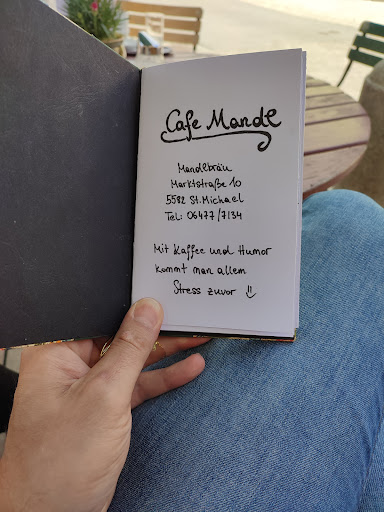 Cafe Mandl
Mandlbräu
Marktstraße 10
5582 St. Michael
Tel: 06477/7134
Mit Kaffee und Humor
kommt man allem
Stress zuvor